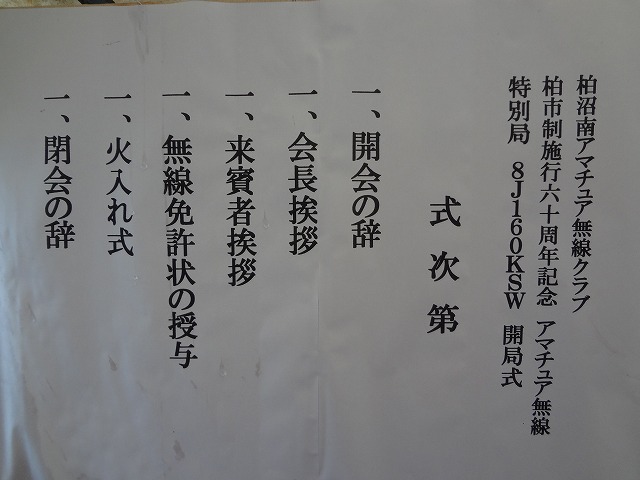 柏沼南アマチュア無線クラブ
柏市制施行六十周年記念 アマチュア無線
特別局 8J160KSW 開局式
式次第
一、開会の辞
一、会長挨拶
一、来賓者挨拶
一、無線免許状の授与
一、火入れ式
一、閉会の辞